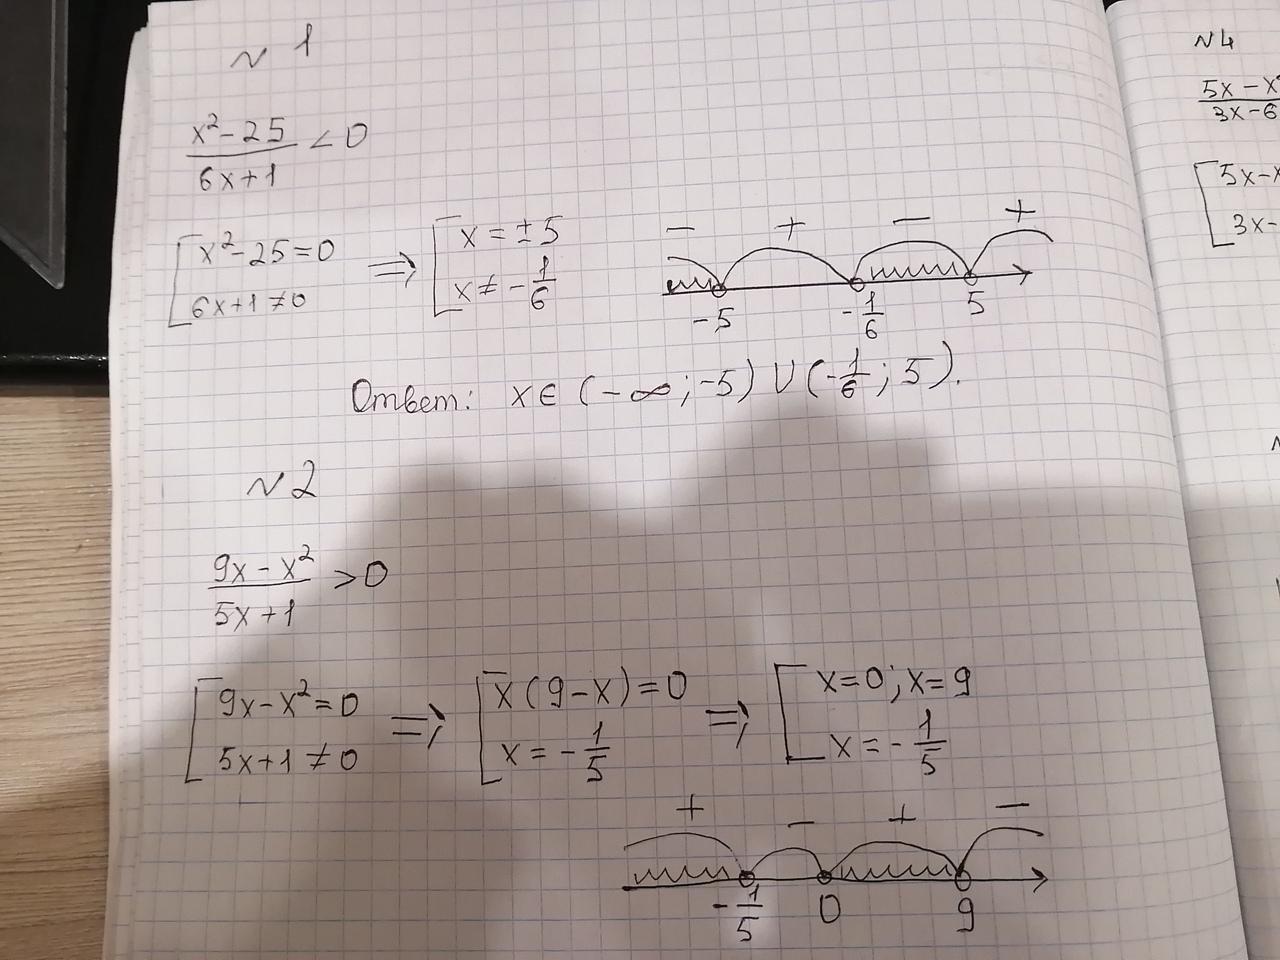 N 1
x²-25/6x+1 < 0
[x²-25=0 6x+1≠0 ⇒ [x=±5 x≠-1/6
- + - +
-5 -1/6 5
Ответ: x∈(-∞;-5)∪(-1/6;5).
N2
9x-x²/5x+1 >0
[9x-x²=0 5x+1≠0 ⇒ [x(9-x)=0 x=-1/5 ⇒ [x=0; x=9 x=-1/5
+ - + -
-1/5 0 9
N4
5x-x²/3x-6
[5x-x
3x-